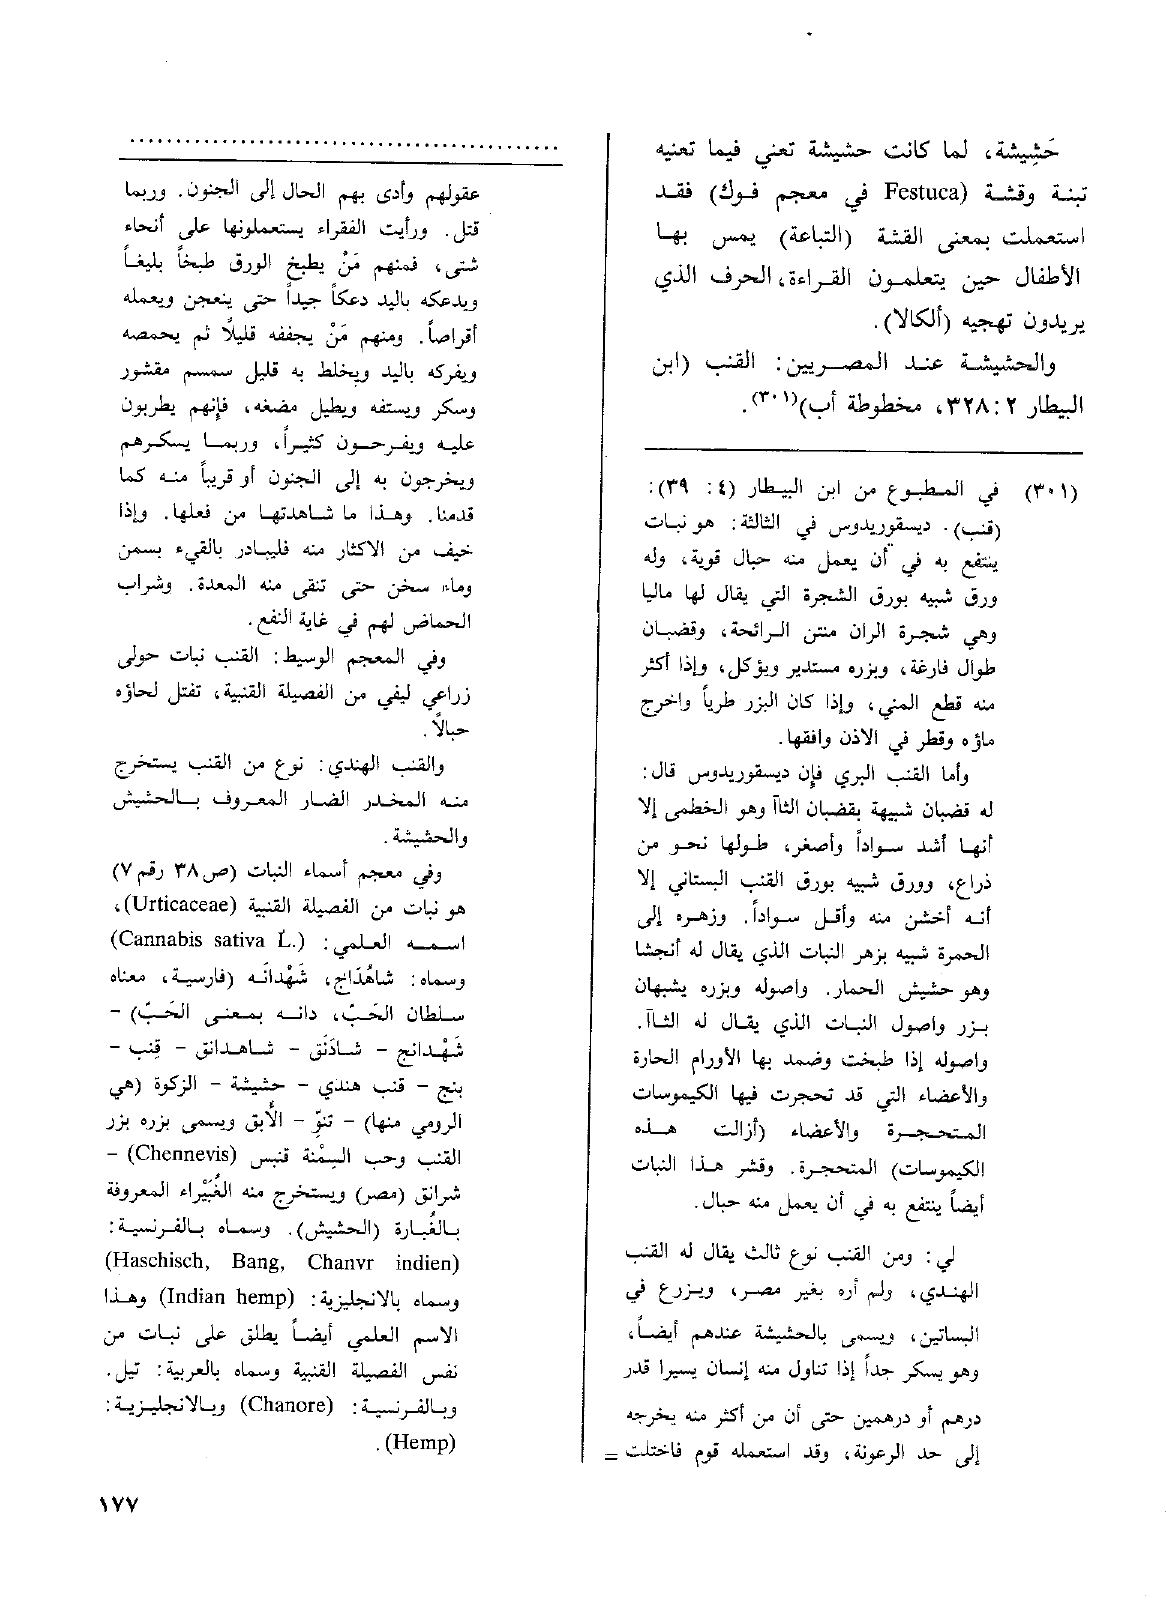 حَشِيشة، لما كانت حشيشة تعني فيما تعنيه
تبنة وقشة (Festuca في معجم فوك) فقد
استعملت بمعنى القشة (التباعة) يمس بها
الأطفال حين يتعلمون القراءة، الحرف الذي
يريدون تهجيه (ألكالا).
والحشيشة عند المصريين: القنب (ابن
البيطار ٢: ٣٢٨، مخطوطة أب)(٣٠١).
(٣٠١) في المطبوع من ابن البيطار (٤: ٣٩):
(قنب). ديسقوريدوس في الثالثة: هو نبات
ينتفع به في أن يعمل منه حبال قوية، وله
ورق شبيه بورق الشجرة التي يقال لها ماليا
وهي شجرة الران منتن الرائحة، وقضبان
طوال فارغة، وبزره مستدير ويؤكل، وإذا أكثر
منه قطع المني، وإذا كان البزر طرياً واخرج
ماؤه وقطر في الاذن وافقها.
وأما القنب البري فإن ديسقوريدوس قال:
له قضبان شبيهة بقضبان الثاآ وهو الخطمى إلا
أنها أشد سواداً وأصغر، طولها نحو من
ذراع، وورق شبيه بورق القنب البستاني إلا
أنه أخشن منه وأقل سواداً. وزهره إلى
الحمرة شبيه بزهر النبات الذي يقال له أنخشا
وهو حشيش الحمار. واصوله وبزره يشبهان
بزر واصول النبات الذي يقال له الثاآ.
واصوله إذا طبخت وضمد بها الأورام الحارة
والأعضاء التي قد تحجرت فيها الكيموسات
المتحجرة والأعضاء (أزالت هذه
الكيموسات) المتحجرة. وقشر هذا النبات
أيضاً ينتفع به في أن يعمل منه حبال.
لي: ومن القنب نوع ثالث يقال له القنب
الهندي، ولم أره بغير مصر، ويزرع في
البساتين، ويسمى بالحشيشة عندهم أيضاً،
وهو يسكر جداً إذا تناول منه إنسان يسيرا قدر
درهم أو درهمين حتى أن من أكثر منه يخرجه
إلى حد الرعونة، وقد استعمله قوم فاختلت =
عقولهم وأدى بهم الحال إلى الجنون. وربما
قتل. ورأيت الفقراء يستعملونها على أنحاء
شتى، فمنهم مَنْ يطبخ الورق طبخاً بليغاً
ويدعكه باليد دعكاً جيداً حتى ينعجن ويعمله
أقراصاً. ومنهم مَنْ يجففه قليلاً ثم يحمصه
ويفركه باليد ويخلط به قليل سمسم مقشور
وسكر ويستفه ويطيل مضغه، فإنهم يطربون
عليه ويفرحون كثيراً، وربما يسكرهم
ويخرجون به إلى الجنون أو قريباً منه كما
قدمنا. وهذا ما شاهدتها من فعلها. وإذا
خيف من الاكثار منه فليبادر بالقيء بسمن
وماء سخن حتى تنقى منه المعدة. وشراب
الحماض لهم في غاية النفع.
وفي المعجم الوسيط: القنب نبات حولى
زراعي ليفي من الفصيلة القنبية، تفتل لحاؤه
حبالاً.
والقنب الهندي: نوع من القنب يستخرج
منه المخدر الضار المعروف بالحشيش
والحشيشة.
وفي معجم أسماء النبات (ص٣٨ رقم ٧)
هو نبات من الفصيلة القنبية (Urticaceae)،
اسمه العلمي: (Cannabis sativa L.)
وسماه: شاهْدَانج، شَهْدَانَه (فارسية، معناه
سلطان الحَبّ، دانه بمعنى الحَبّ) -
شَهْدانج - شَادَنَق - شاهدانق - قِنب -
بنج - قنب هندي - حشيشة - الزكوة (هي
الرومي منها) - تنوّ - الأبق ويسمى بزره بزر
القنب وحب السِمْنة قنبس (Chennevis) -
شرانق (مصر) ويستخرج منه الغُبَيْراء المعروفة
بالغُبارة (الحشيش). وسماه بالفرنسية:
(Haschisch, Bang, Chanvr indien)
وسماه بالانجليزية: (Indian hemp) وهذا
الاسم العلمي أيضاً يطلق على نبات من
نفس الفصيلة القنبية وسماه بالعربية: تيل.
وبالفرنسية: (Chanore) وبالانجليزية:
(Hemp).
١٧٧